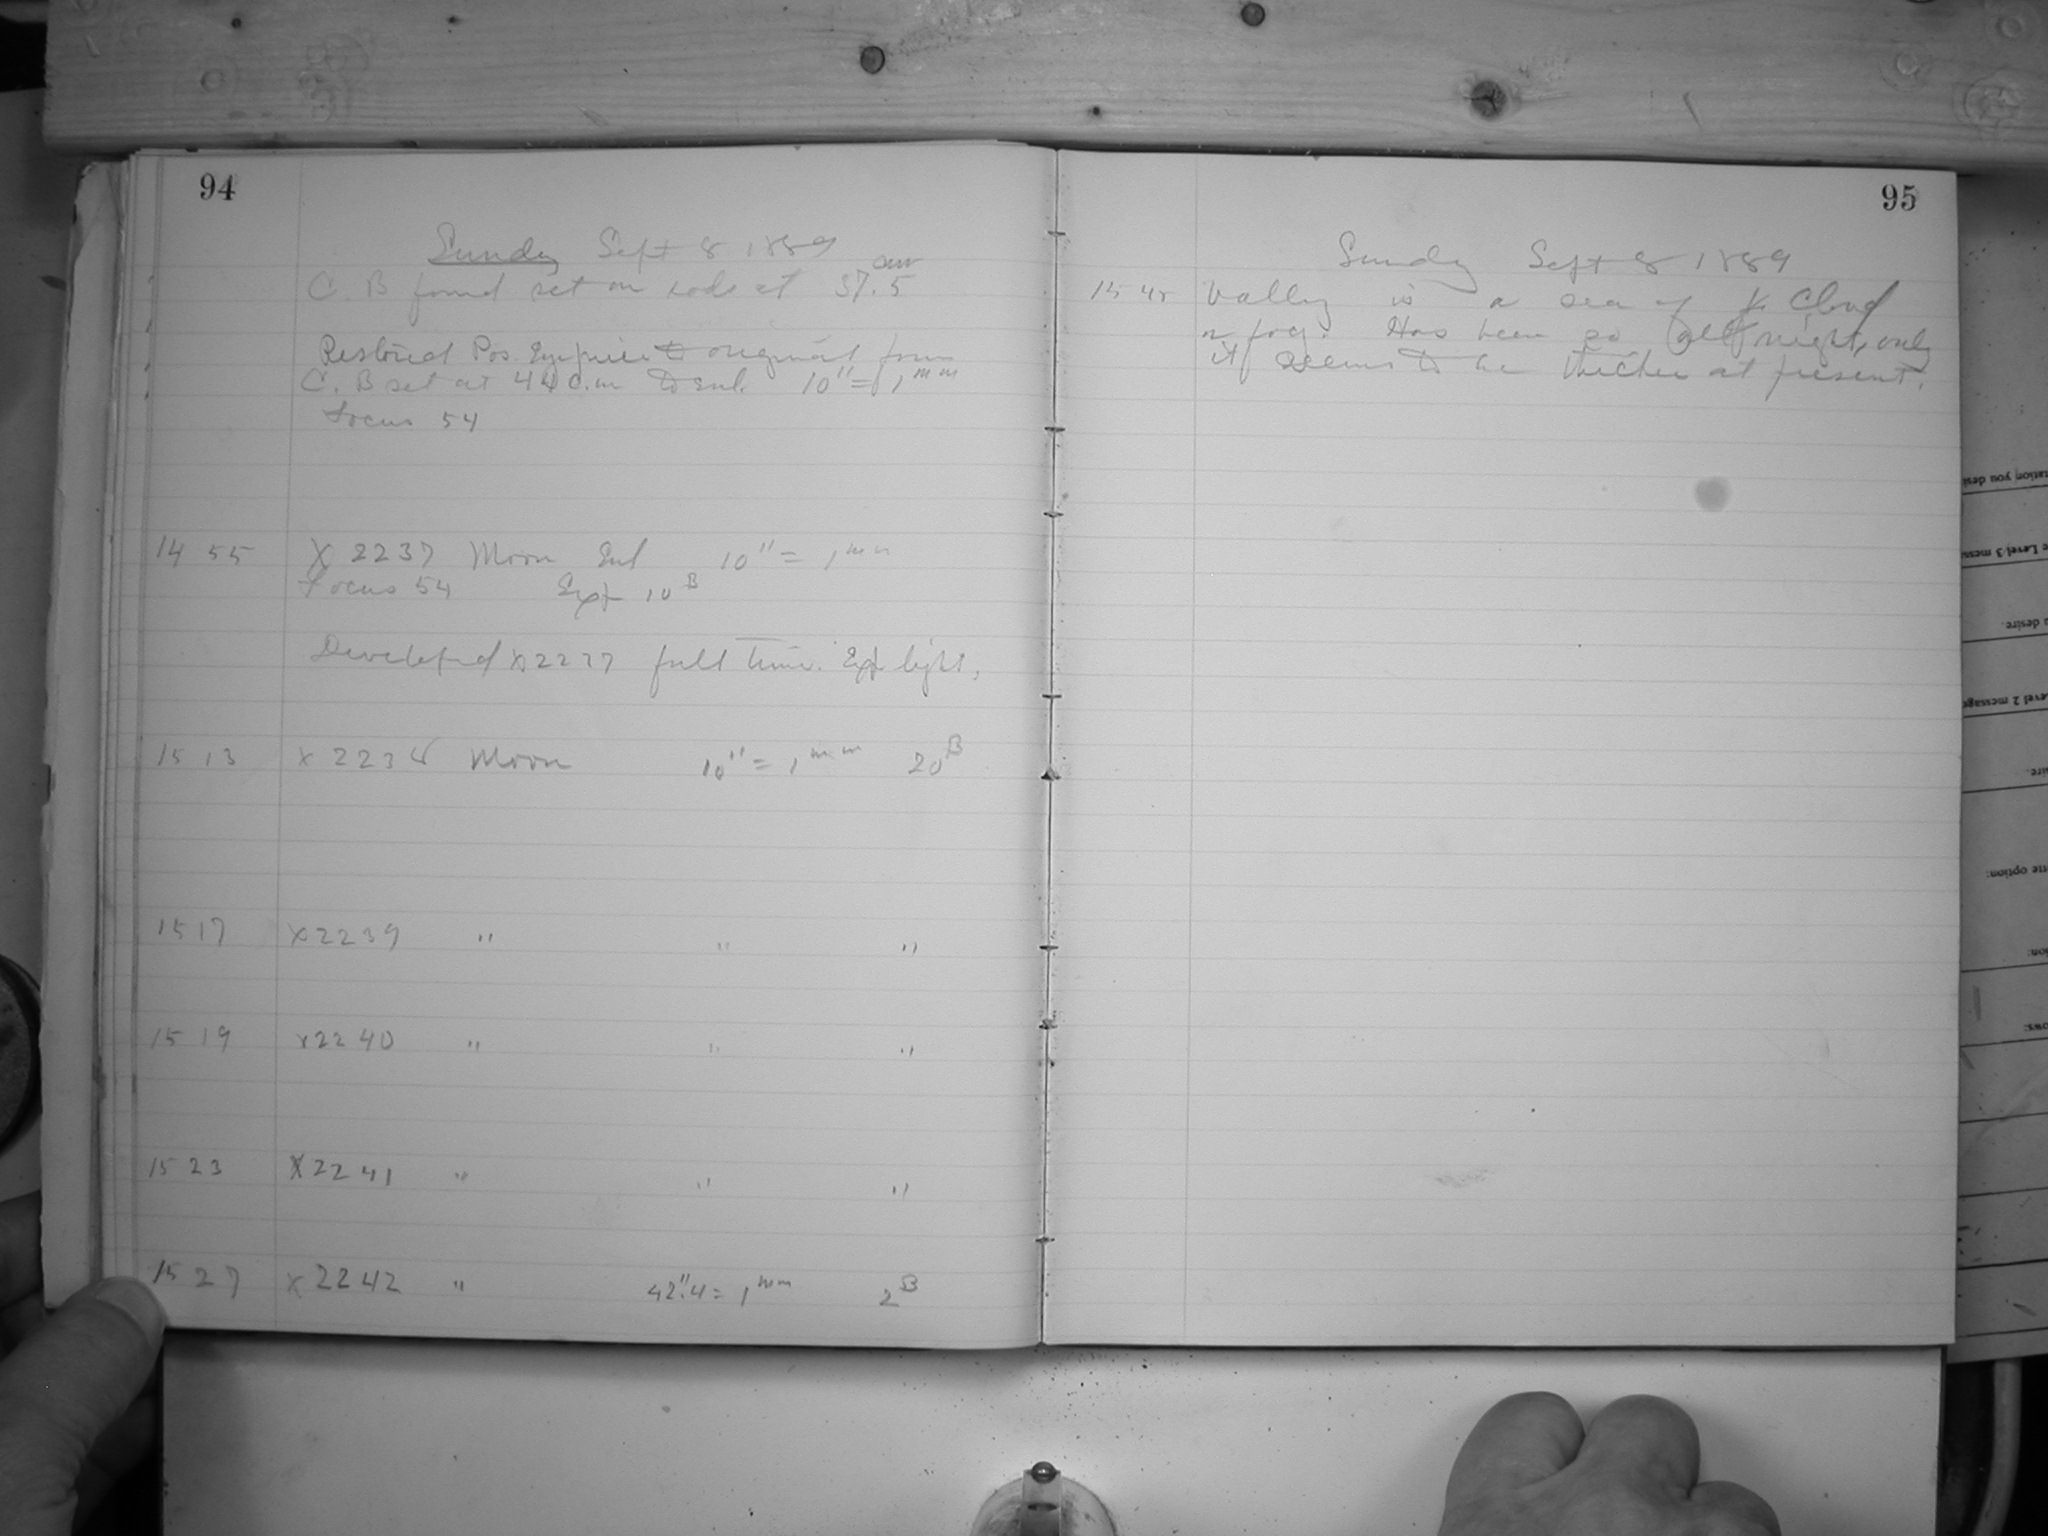 94
Sunday Sept 8 1889
C. B found set on rods at 37.5 cm
Restored Pos. Eyepiece to original form
C. B set at 44 c.m to Enl. 10" = 1 mm
Focus 54
14 55 X 2237 Moon Enl 10" = 1 mm
Focus 54 Exp 10 B
Developed X 2237 full time. Exp light.
15 13 X 2238 Moon 10" = 1 mm 20 B
15 17 X 2239 " " "
15 19 X 2240 " " "
15 23 X 2241 " " "
15 27 X 2242 " 42".4 = 1 mm 2 B
95
Sunday Sept 8 1889
15 45 Valley is a sea of Cloud
or fog. Has been so all night, only
it seems to be thicker at present.
tation you desi
e Level 3 mess
desire.
evel 2 message
ire.
option:
ion:
ows: